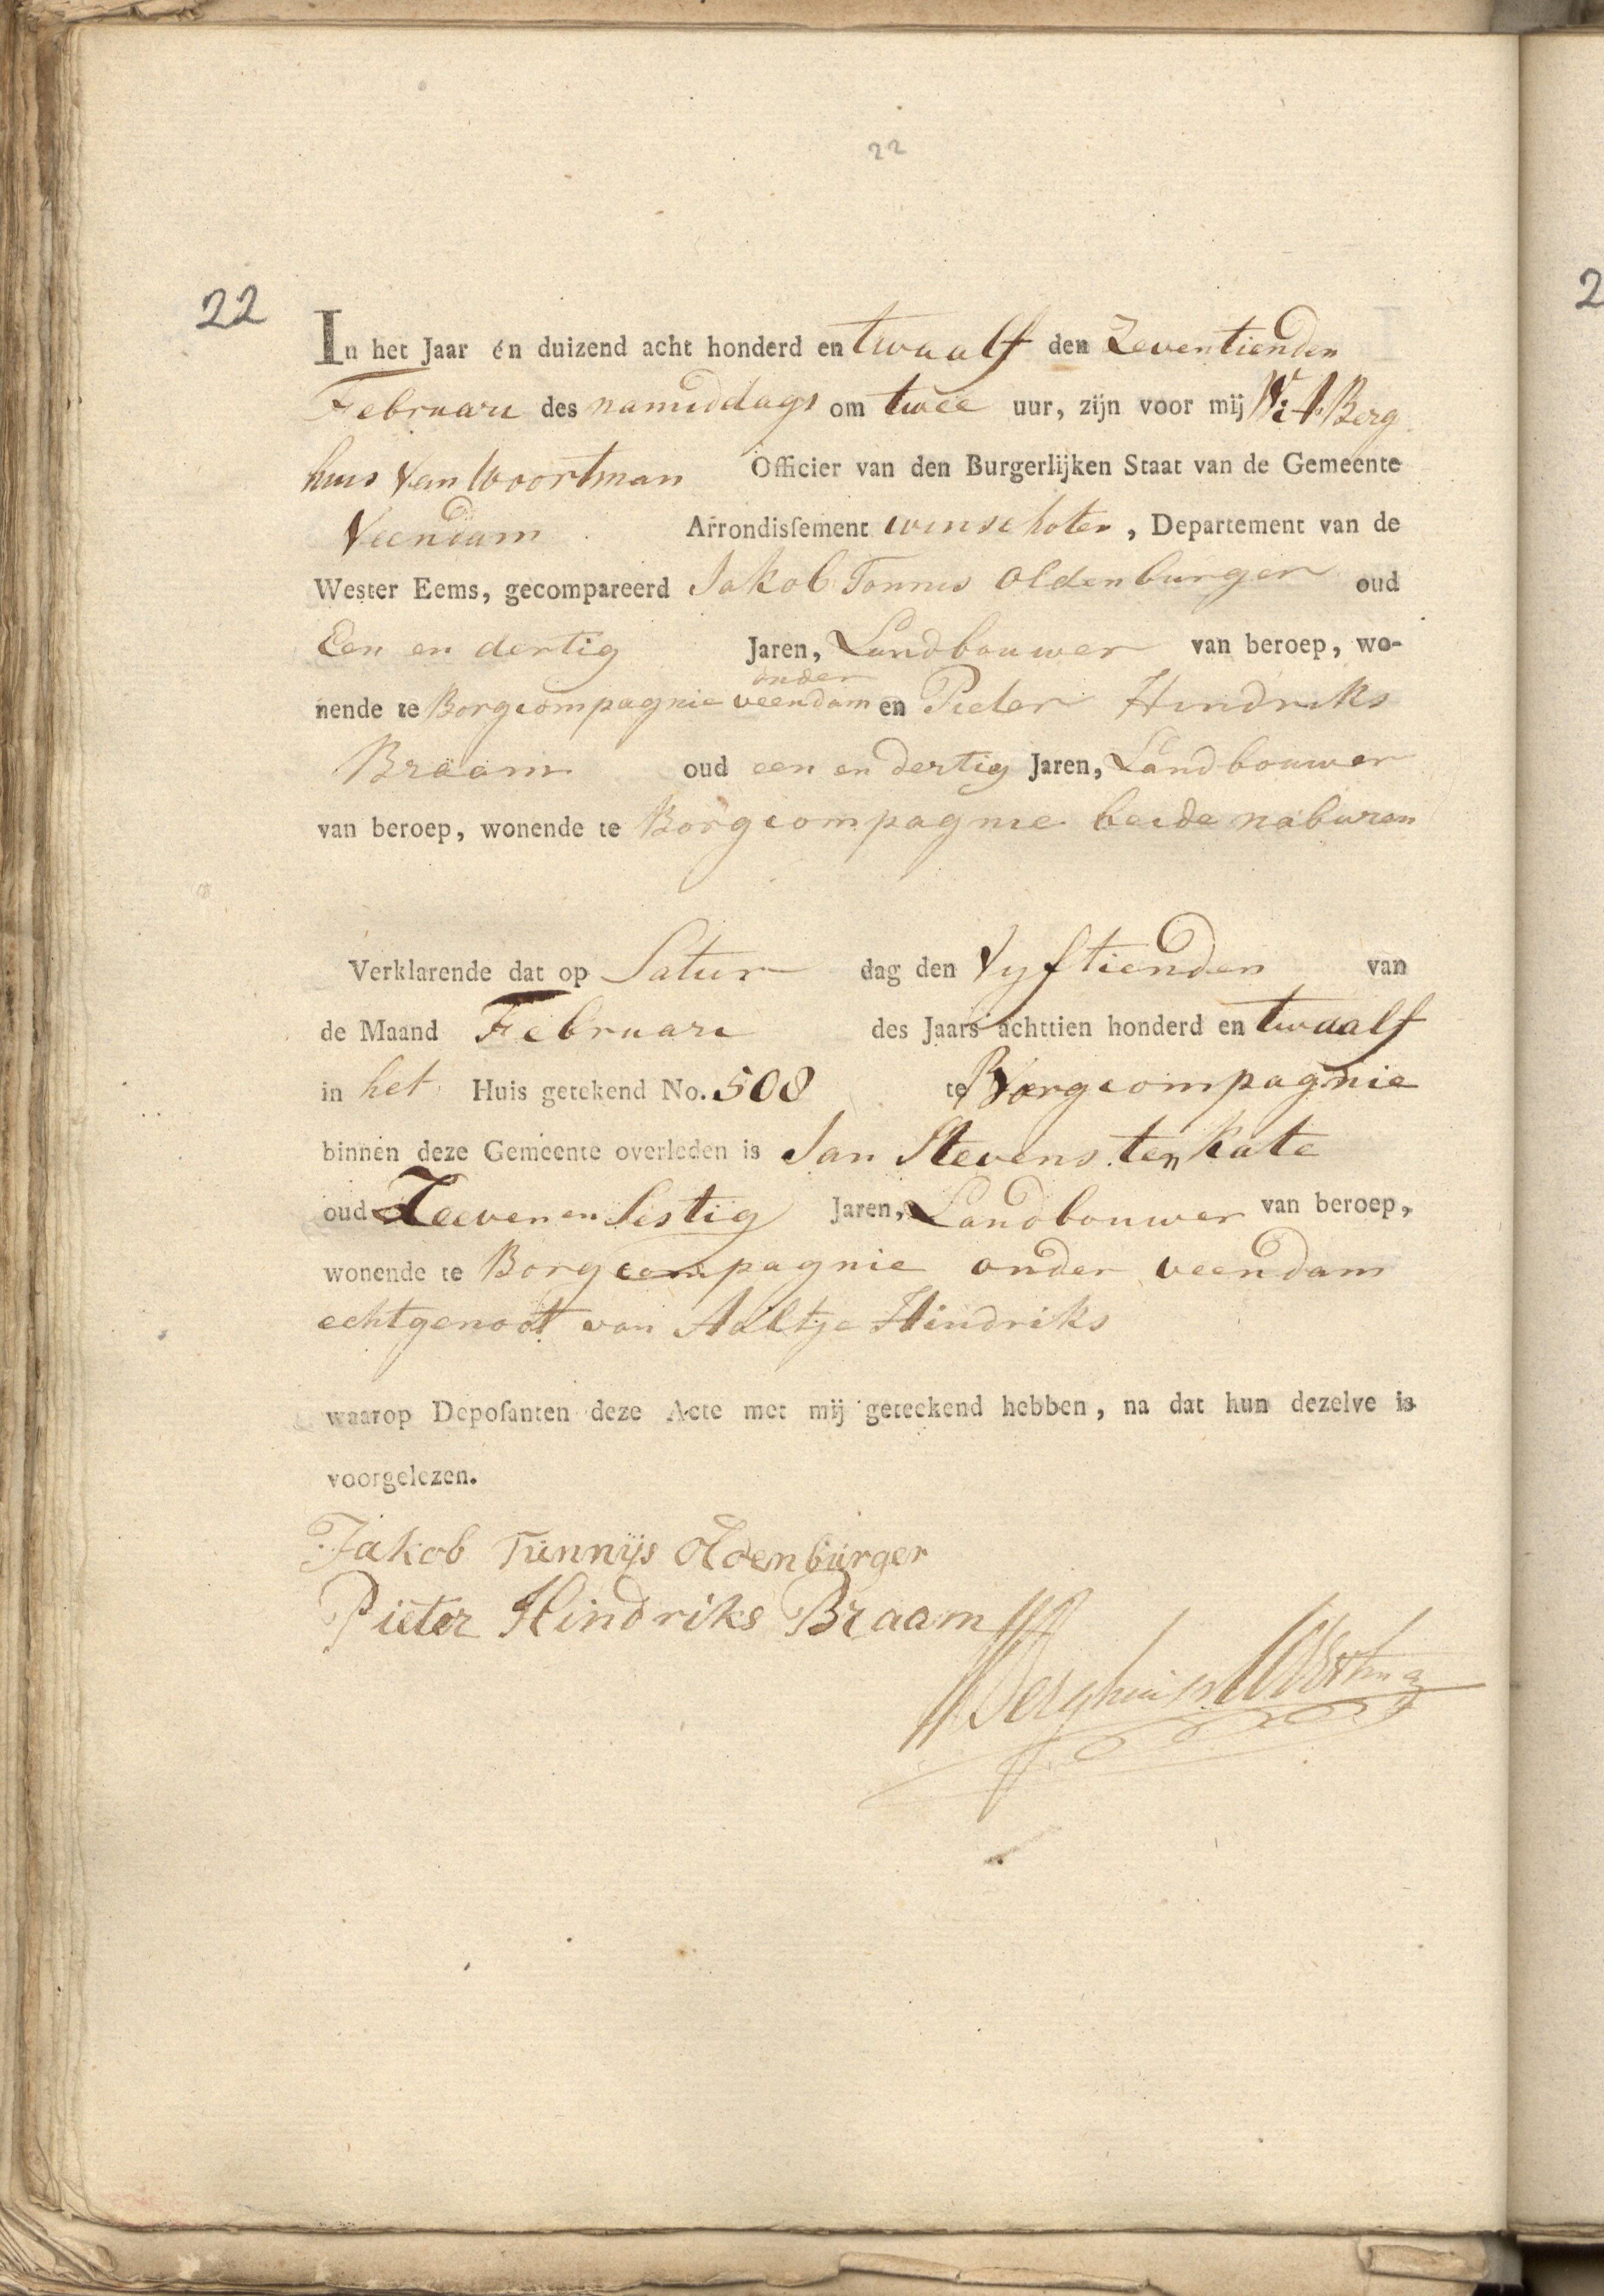 22
22
In het Jaar én duizend acht honderd en twaalf den Zeventienden
Februari des namiddags om twee uur, zijn voor mij Berg
huis van Woortman Officier van den Burgerlijken Staat van de Gemeente
Veendam Arrondisſement winschoten, Departement van de
Wester Eems, gecompareerd Jakob Tonnis Oldenburger oud
Een en dertig Jaren, Landbouwer van beroep, wo-
onder
nende te Borgcompagnie veendam en Pieter Hindriks
Braam oud een en dertig Jaren, Landbouwer
van beroep, wonende te Borgcompagnie beide naburen
Verklarende dat op Satur dag den Vyftienden van
de Maand Februari des Jaars achttien honderd en twaalf
in het Huis getekend No. 508 te Borgcompagnie
binnen deze Gemeente overleden is Jan Stevens ten kate
oud Zeeven en Sestig Jaren, Landbouwer van beroep,
wonende te Borgcompagnie onder veendam
echtgenoot van Aaltje Hindriks
waarop Depoſanten deze Acte met mij geteekend hebben, na dat hun dezelve is
voorgelezen.
Jakob Tünnijs Oldenbürger
Pieter Hindriks Braam
Berghuis v. Woortman
2